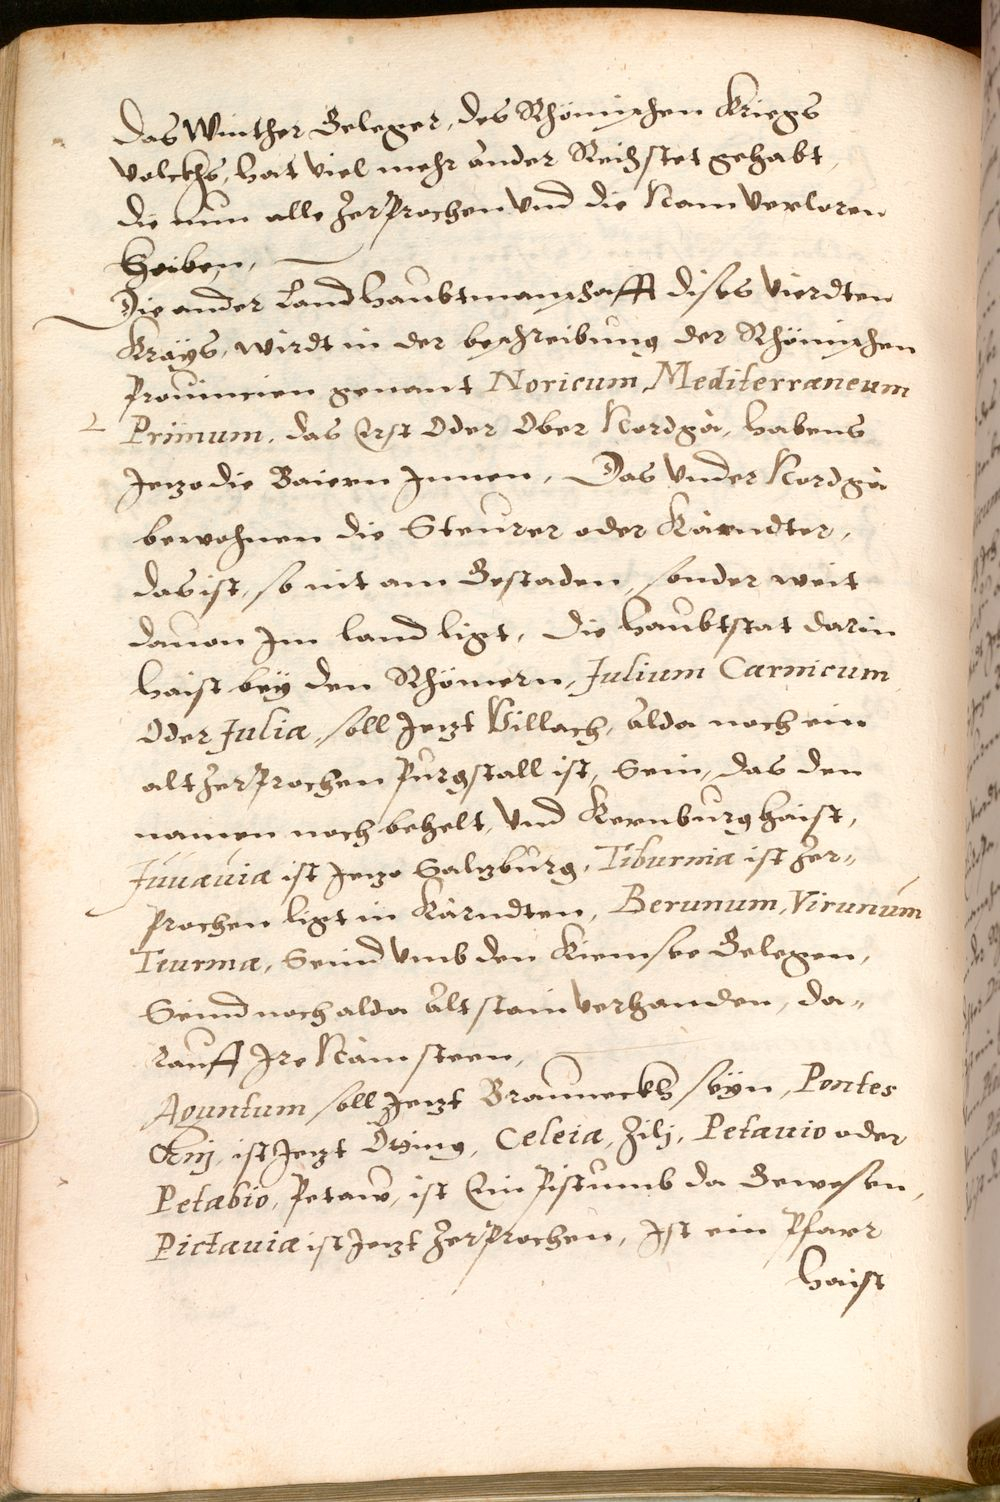 Das Winther Geleger, des Rhömischen Kriegs
volckhs, hat viel mehr ander Reichstet gehabt,
die nun alle zerprochen vnd die Nam verloren
Haiben,
Die ander Landhaubtmanschafft dises vierdten
Kräys, wirdt in der beschreibung der Rhömischen
Prouincien genant Noricum Mediterraneum
Primum, das Erst oder ober Nordgä, habens
Jetzo die Baiern Jnnen, Das vnder Nordgä
bewohnen die Steurer oder Kärndter,
das ist, so nit am Gestaden, sonder weit
dauon Jm land ligt, die Haubtstat darin
haist bey den Rhömern, Julium Carnicum
oder Julia, soll Jetzt Villach, alda noch ein
alt zerprochen Purgstall ist, Sein, das den
namen noch behelt, vnd Kernburg haist,
Juuauia ist Jetzo Saltzburg, Tiburnia ist zer-
prochen ligt in Kärndten, Berunum, Virunum
Teurnia, Seind vmb den Kiemsee Gelegen,
Seind noch alda alt stain verhanden, da-
rauff Jre Näm steen,
Aguntum soll Jetzt Braunneckh seyn, Pontes
Œnij, ist Jetzt Öting, Celeia, Zilj, Petauio oder
Petabio, Petaw, ist Ein Pistumb da Gewesen,
Pictauia ist Jetzt zerprochen, Ist ein Pfarr
haist